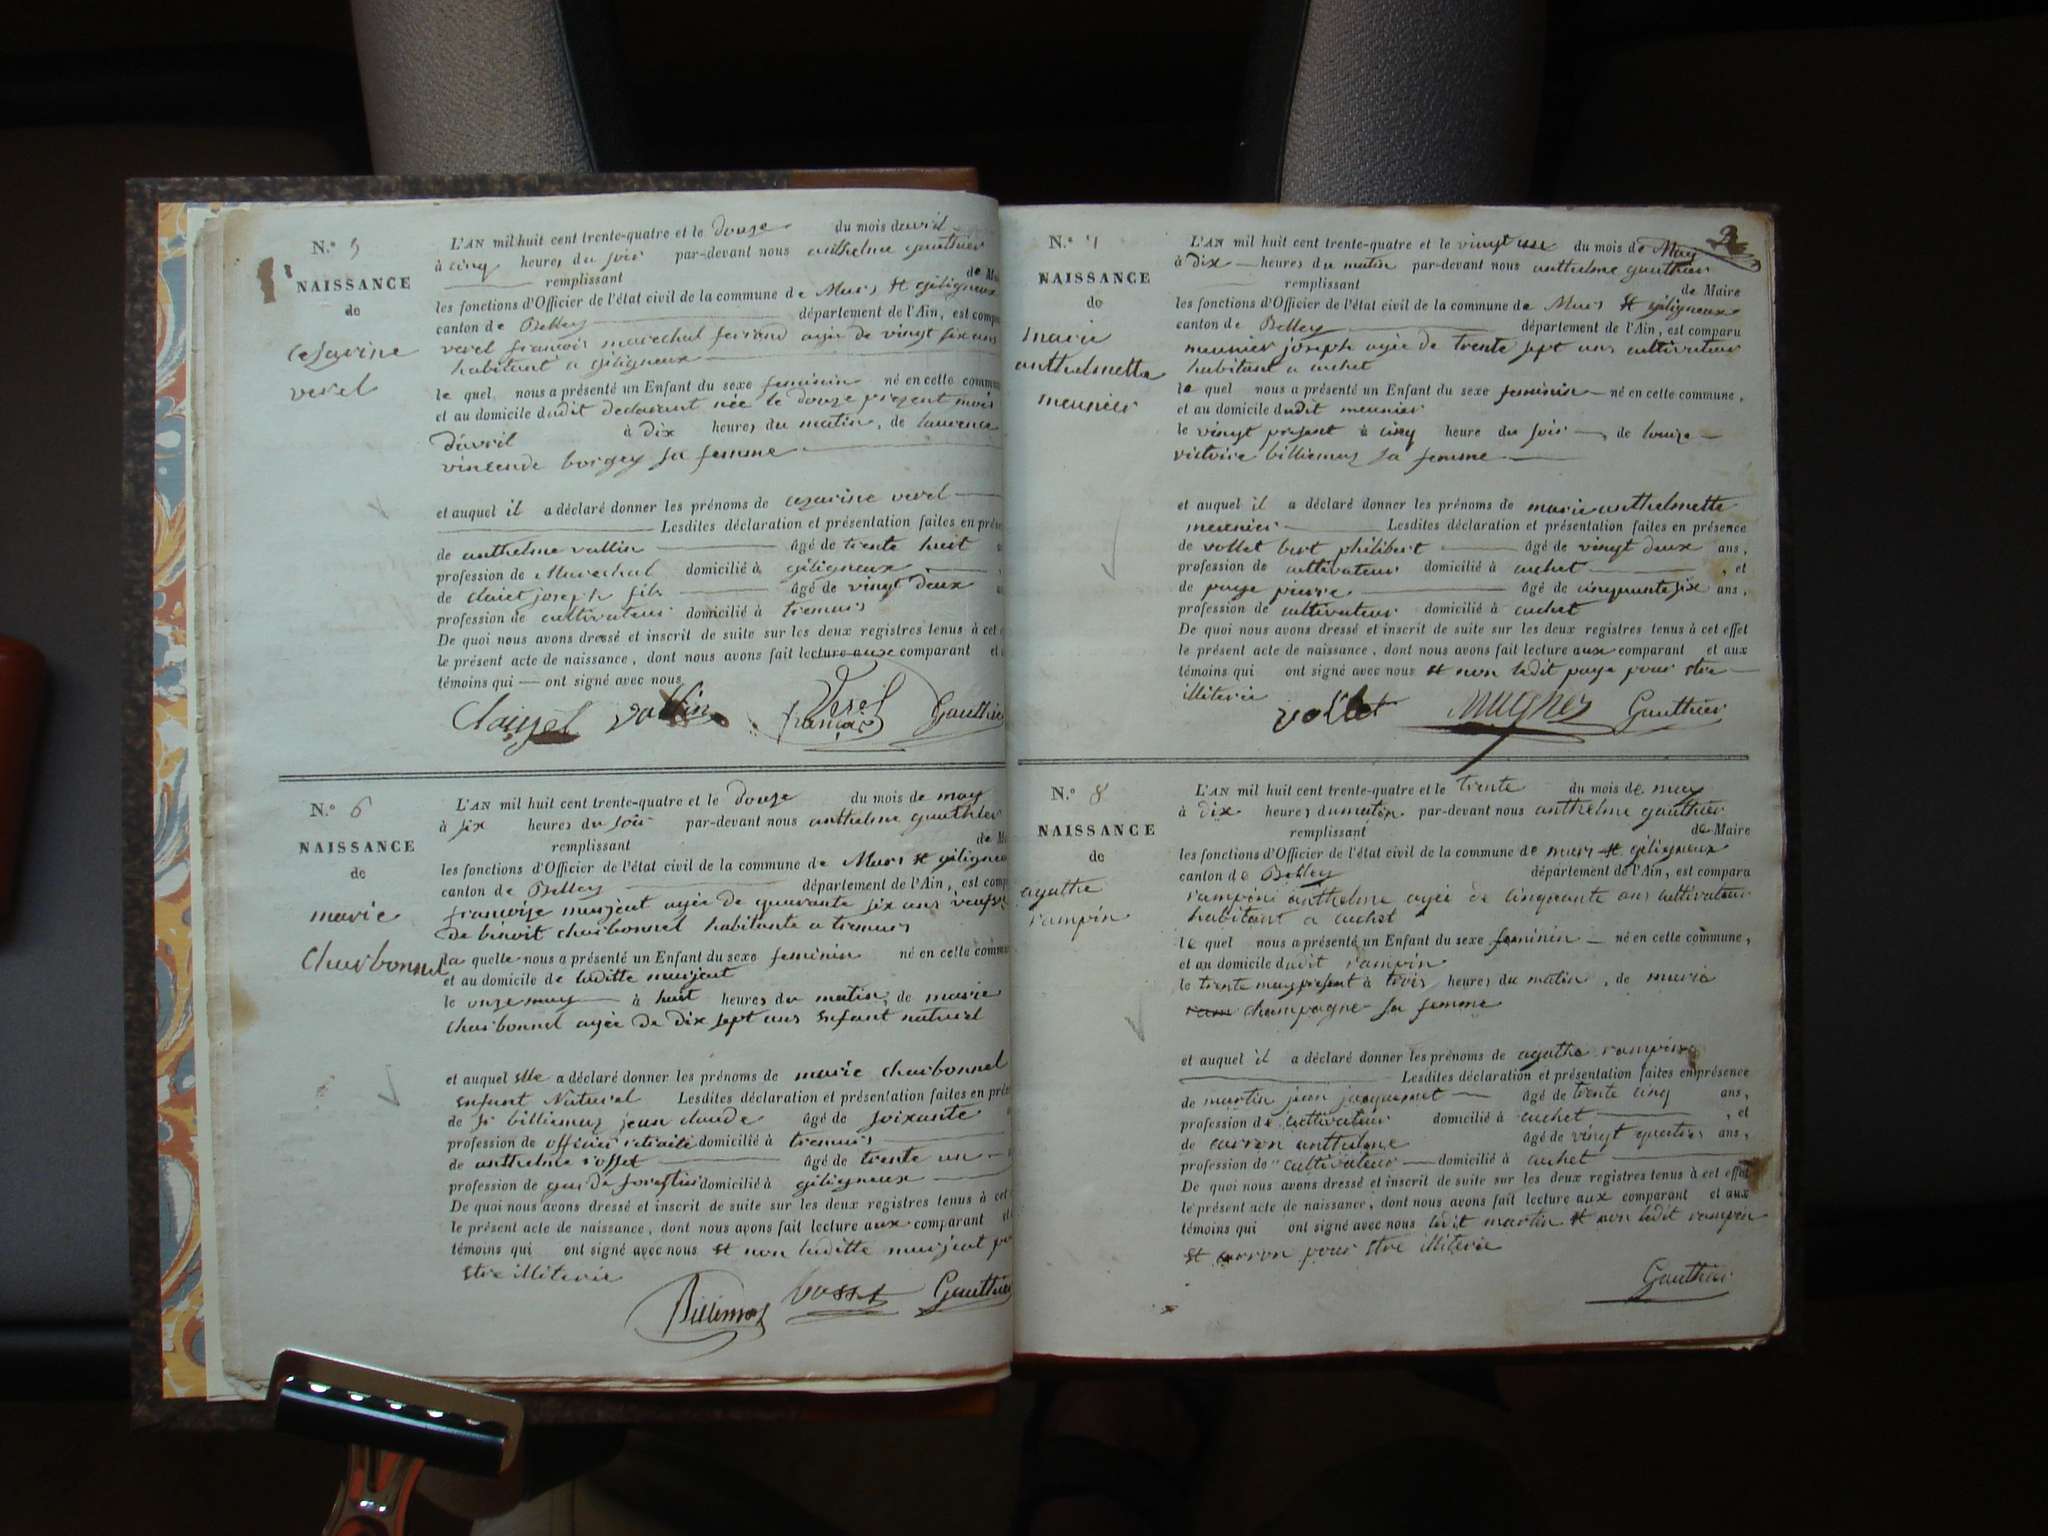 N.° 5
NAISSANCE
de
cesarine
verel
L'AN mil huit cent trente-quatre et le douze du mois davril
à cinq heures du soir par-devant nous anthelme gauthier
remplissant de
les fonctions d'Officier de l'état civil de la commune de Murs et géligneux
canton de Belley département de l'Ain, est
verel françois marechal ferrand agée de vingt six ans
habitant a géligneux
le quel nous a présenté un Enfant du sexe feminin né en cette
et au domicile dudit declarant née le douze present mois
davril à dix heures du matin, de laurence
borgey sa femme
et auquel il a déclaré donner les prénoms de cezarine verel
Lesdites déclaration et présentation faites en
de anthelme vallin âgé de trente huit
profession de Marechal domicilié à géligneux
de joseph fils âgé de vingt deux
profession de cultivateur domicilié à tremurs
De quoi nous avons dressé et inscrit de suite sur les deux registres tenus à cet
le présent acte de naissance, dont nous avons fait lecture aux comparant
témoins qui — ont signé avec nous
vallin Verel françois Gauthier
N.° 6
NAISSANCE
de
marie
Charbonnel
L'AN mil huit cent trente-quatre et le douze du mois de may
à six heures du soir par-devant nous anthelme gauthier
remplissant de
les fonctions d'Officier de l'état civil de la commune de Murs et
canton de Belley département de l'Ain, est
françoise murjeat agée de quarante six ans
de benoit charbonnel habitante a tremurs
la quelle nous a présenté un Enfant du sexe feminin né en cette
et au domicile de laditte murjeat
le onze may à huit heures du matin, de marie
charbonnel agée de dix sept ans enfant naturel
et auquel elle a déclaré donner les prénoms de marie charbonnel
enfant Naturel Lesdites déclaration et présentation faites en
de billiemaz jean claude âgé de soixante
profession de officier retraité domicilié à tremurs
de anthelme rosset âgé de trente un
profession de garde forestier domicilié à géligneux
De quoi nous avons dressé et inscrit de suite sur les deux registres tenus à cet
le présent acte de naissance, dont nous avons fait lecture aux comparant
témoins qui ont signé avec nous et non laditte murjeat
etre illiterée
Gauthier
N.° 7
NAISSANCE
de
marie
anthelmette
meunier
L'AN mil huit cent trente-quatre et le vingt du mois de May
à dix heures du matin par-devant nous anthelme gauthier
remplissant de Maire
les fonctions d'Officier de l'état civil de la commune de Murs et géligneux
canton de Belley département de l'Ain, est comparu
meunier joseph agée de trente sept ans cultivateur
habitant a cuchet
le quel nous a présenté un Enfant du sexe feminin né en cette commune,
et au domicile dudit meunier
le vingt présent à cinq heure du soir, de louize
victoire billiemaz sa femme
et auquel il a déclaré donner les prénoms de marie anthelmette
meunier Lesdites déclaration et présentation faites en présence
de vollet philibert âgé de vingt deux ans,
profession de cultivateur domicilié à cuchet, et
de page pierre âgé de cinquante six ans,
profession de cultivateur domicilié à cuchet
De quoi nous avons dressé et inscrit de suite sur les deux registres tenus à cet effet
le présent acte de naissance, dont nous avons fait lecture aux comparant et aux
témoins qui ont signé avec nous et non ledit page pour etre
illiteré
vollet Gauthier
N.° 8
NAISSANCE
de
agathe
rampin
L'AN mil huit cent trente-quatre et le trente du mois de may
à dix heures du matin par-devant nous anthelme gauthier
remplissant de Maire
les fonctions d'Officier de l'état civil de la commune de murs et géligneux
canton de Belley département de l'Ain, est comparu
rampin anthelme agée de cinquante ans cultivateur
habitant a cuchet
le quel nous a présenté un Enfant du sexe feminin né en cette commune,
et au domicile dudit rampin
le trente may présent à trois heures du matin, de marie
champagne sa femme
et auquel il a déclaré donner les prénoms de agathe rampin
Lesdites déclaration et présentation faites en présence
de martin jean jacquemet âgé de trente cinq ans,
profession de cultivateur domicilié à cuchet, et
de carron anthelme âgé de vingt quatre ans,
profession de cultivateur domicilié à cuchet
De quoi nous avons dressé et inscrit de suite sur les deux registres tenus à cet effet
le présent acte de naissance, dont nous avons fait lecture aux comparant et aux
témoins qui ont signé avec nous ledit martin et non ledit rampin
et carron pour etre illiteré
Gauthier